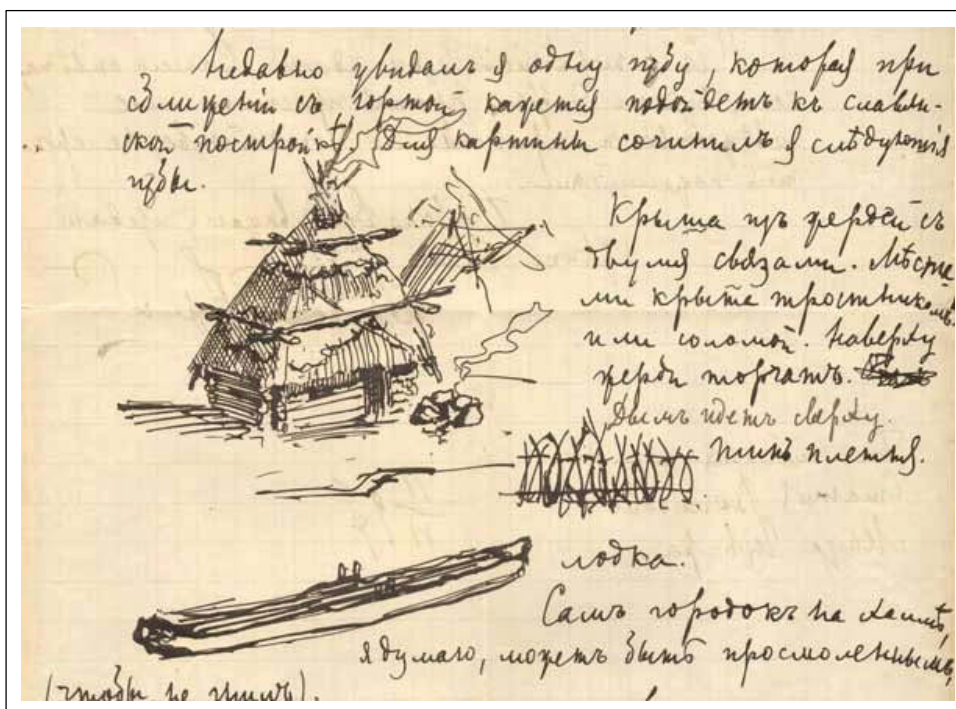 Недавно увидалъ я одну избу, которая при
сближеніи съ юртой кажется подойдетъ къ славян-
ской постройкѣ. Для картины сочинилъ я слѣдующія
избы.
Крыша изъ жердей съ
двумя связами. Мѣста
ми крыта тростникомъ
или соломой. Наверху
жерди торчатъ.
Дымъ идетъ сверху.
типъ плетня.
лодка.
Самъ городокъ на холмѣ,
я думаю, можетъ быть просмоленнымъ,
(чтобы не гнилъ).